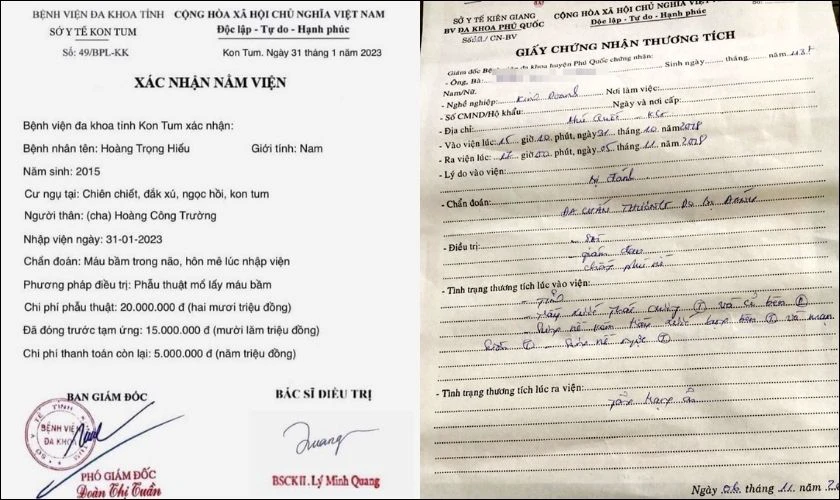 BỆNH VIỆN ĐA KHOA TỈNH
SỞ Y TẾ KON TUM
Số: 49/BPL-KK
CỘNG HÒA XÃ HỘI CHỦ NGHĨA VIỆT NAM
Độc lập - Tự do - Hạnh phúc
Kon Tum. Ngày 31 tháng 1 năm 2023
XÁC NHẬN NẰM VIỆN
Bệnh viện đa khoa tỉnh Kon Tum xác nhận:
Bệnh nhân tên: Hoàng Trọng Hiếu Giới tính: Nam
Năm sinh: 2015
Cư ngụ tại: Chiên chiết, đắk xú, ngọc hồi, kon tum
Người thân: (cha) Hoàng Công Trường
Nhập viện ngày: 31-01-2023
Chẩn đoán: Máu bầm trong não, hôn mê lúc nhập viện
Phương pháp điều trị: Phẫu thuật mổ lấy máu bầm
Chi phí phẫu thuật: 20.000.000 đ (hai mươi triệu đồng)
Đã đóng trước tạm ứng: 15.000.000 đ (mười lăm triệu đồng)
Chi phí thanh toán còn lại: 5.000.000 đ (năm triệu đồng)
BAN GIÁM ĐỐC
BỆNH VIỆN
ĐA KHOA
PHÓ GIÁM ĐỐC
Đoàn Thị Tuần
BÁC SĨ ĐIỀU TRỊ
Quang
BSCKII. Lý Minh Quang
SỞ Y TẾ KIÊN GIANG
BV ĐA KHOA PHÚ QUỐC
/CN-BV
CỘNG HÒA XÃ HỘI CHỦ NGHĨA VIỆT NAM
Độc lập - Tự do - Hạnh phúc
GIẤY CHỨNG NHẬN THƯƠNG TÍCH
Giám đốc Bệnh viện đa khoa huyện Phú Quốc chứng nhận:
- Ông, Bà: Sinh ngày tháng năm
Nam/Nữ:
- Nghề nghiệp: Kinh Doanh Nơi làm việc:
- Số CMND/Hộ khẩu: Ngày và nơi cấp:
- Địa chỉ: Phú Quốc - KG
- Vào viện lúc: 15 giờ 10 phút, ngày 31 tháng 10 năm 2018
- Ra viện lúc: 17 giờ 00 phút, ngày 05 tháng 11 năm 2018
- Lý do vào viện: bị đánh
- Chẩn đoán: ĐA CHẤN THƯƠNG DO BỊ ĐÁNH
- Điều trị:
giảm đau
chống phù nề
- Tình trạng thương tích lúc vào viện:
- Tỉnh
- Tình trạng thương tích lúc ra viện:
Ngày 06 tháng 11 năm